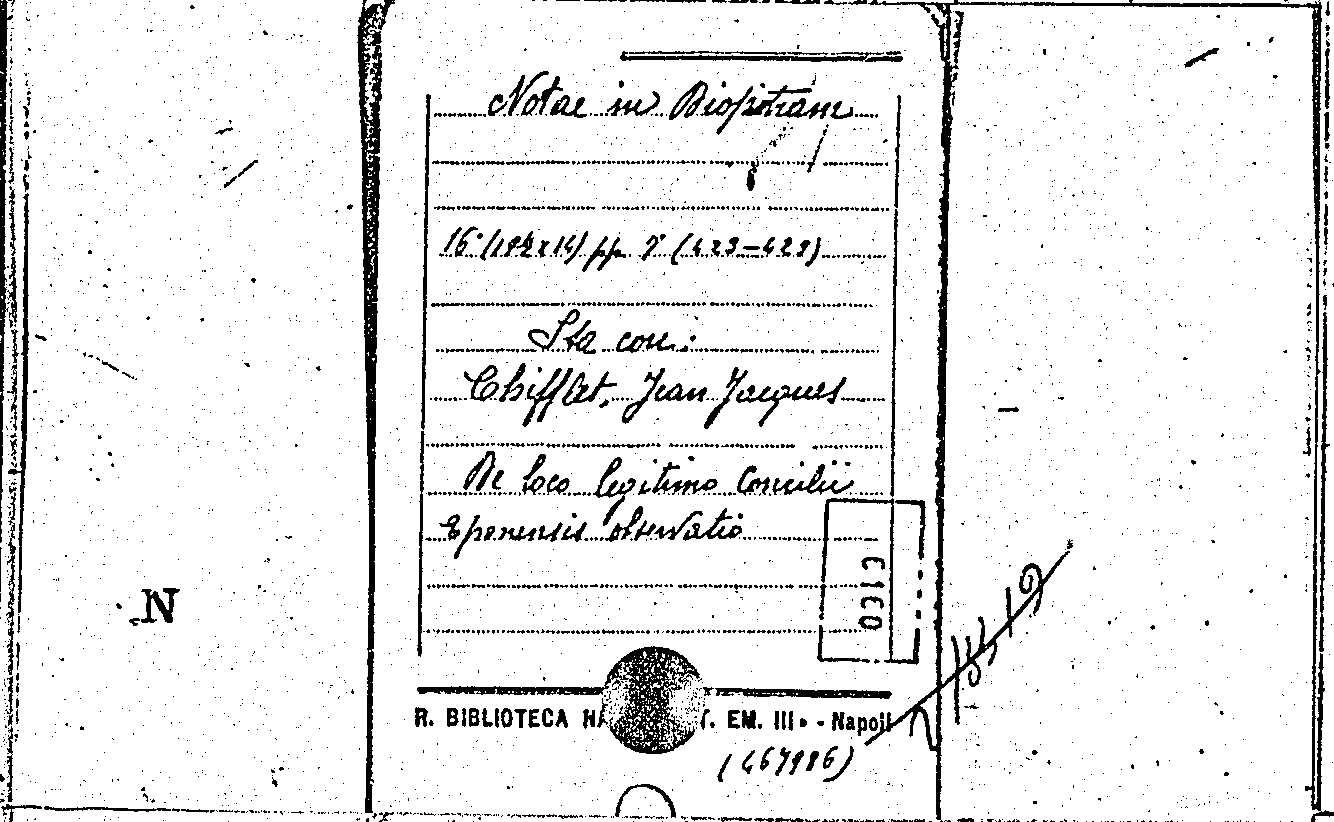 Notae in Diopetram
16° (18½ x 14) pp. 7 (423–429)
Sta con:
Chifflet, Jean Jacques
De loco legitimo Concilii
Eponensis observatio
CICO
N
R. BIBLIOTECA EM. III - Napoli
(467986)